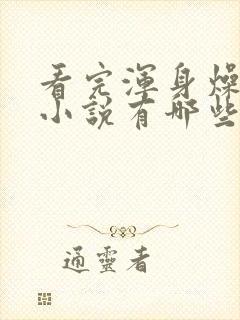 看完渾身燥
小說有哪些
通靈者